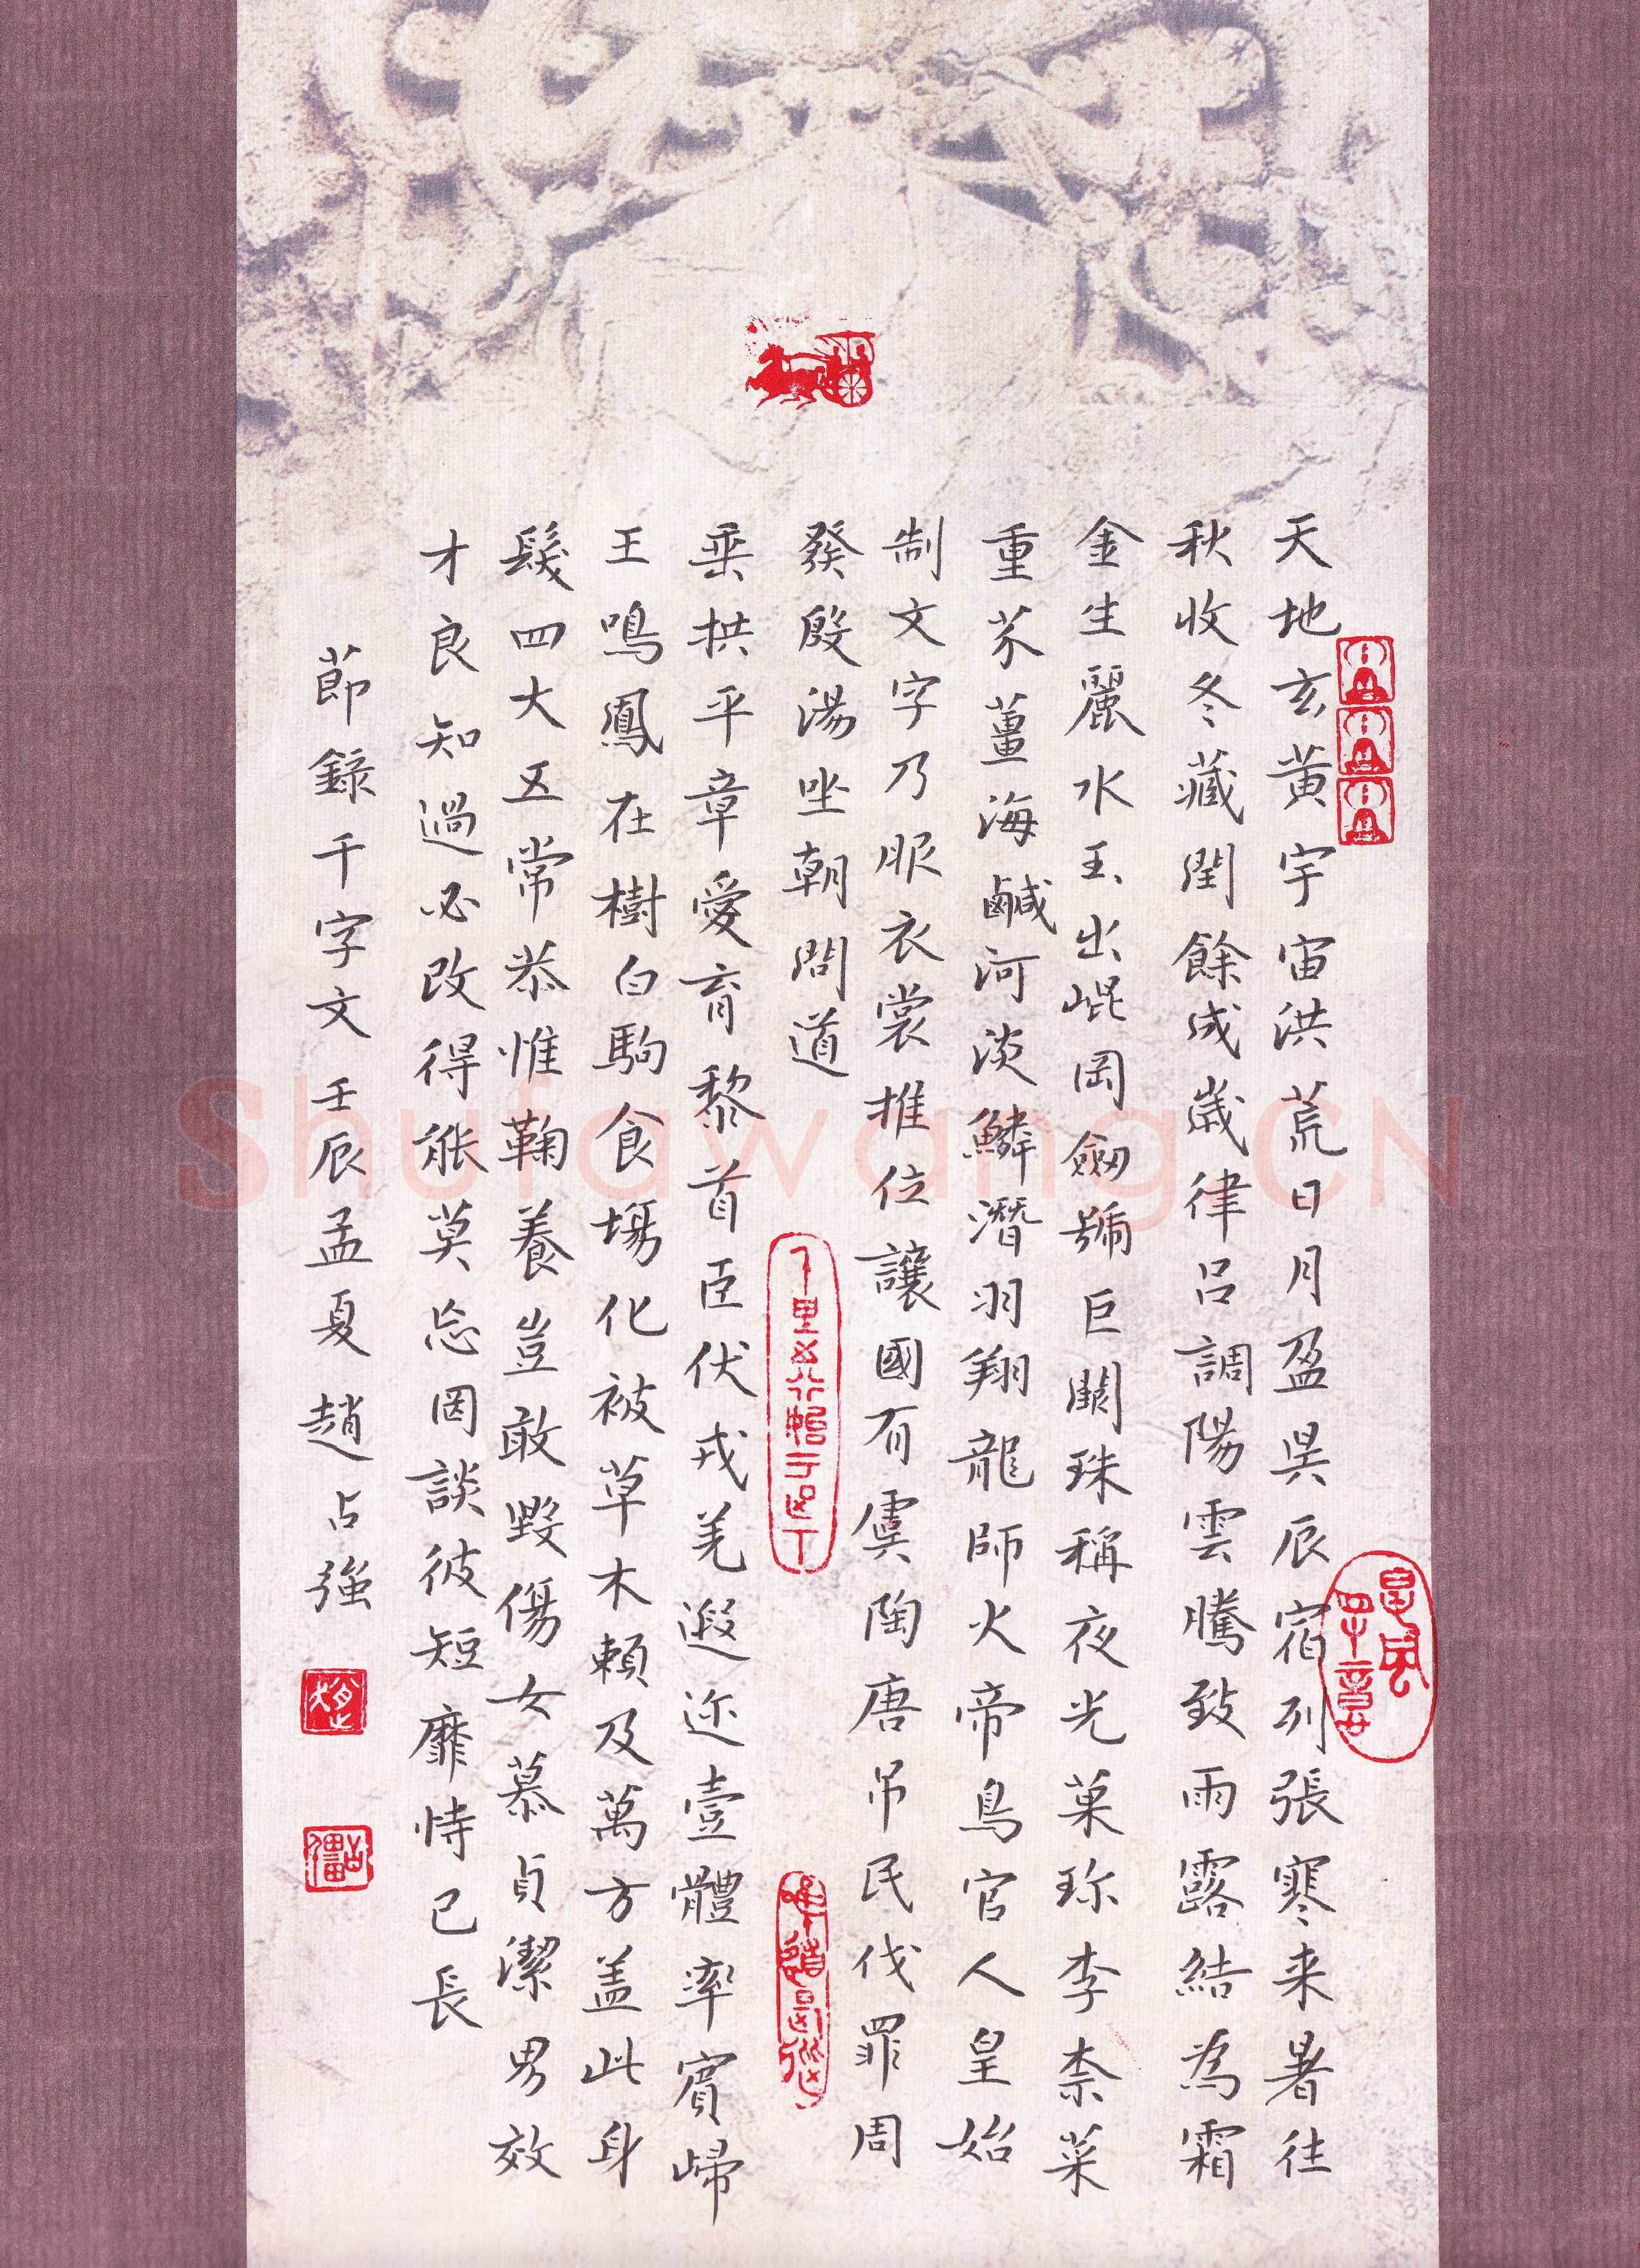 天地玄黃宇宙洪荒日月盈昃辰宿列張寒来暑往
秋收冬藏閏餘成歲律呂調陽雲騰致雨露結為霜
金生麗水玉出崐岡劔號巨闕珠稱夜光菓珍李柰菜
重芥薑海鹹河淡鱗潛羽翔龍師火帝鳥官人皇始
制文字乃服衣裳推位讓國有虞陶唐吊民伐罪周
發殷湯坐朝問道
垂拱平章愛育黎首臣伏戎羌遐迩壹體率賓歸
王鳴鳳在樹白駒食場化被草木賴及萬方盖此身
髮四大五常恭惟鞠養豈敢毀傷女慕貞潔男效
才良知過必改得能莫忘罔談彼短靡恃己長
節錄千字文壬辰孟夏趙占強
Shufawang.CN